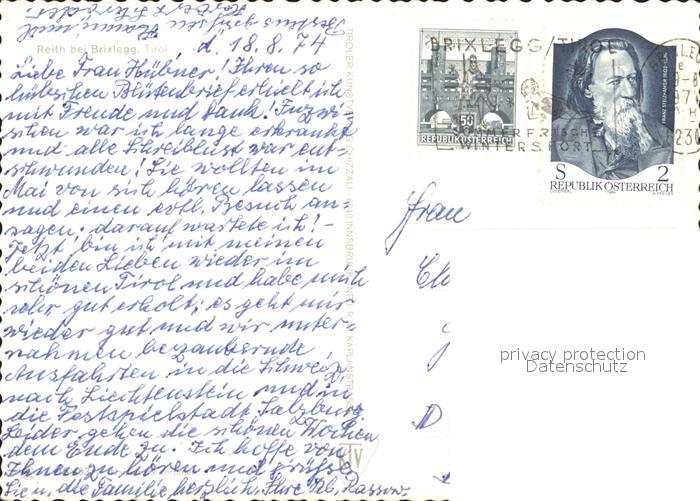 Reith bei Brixlegg, Tirol
d. 18.8.74
Liebe Frau Hübner! Ihren so
hübschen Blütenbrief erhielt ich
mit Freude und Dank! Inzwi=
schen war ich lange erkrankt
und alle Schreiblust war ent=
schwunden! Sie wollten im
Mai von sich hören lassen
und einen evtl. Besuch an=
sagen. darauf wartete ich! -
Jetzt bin ich mit meinen
beiden Lieben wieder im
schönen Tirol und habe mich
sehr gut erholt; es geht mir
wieder gut und wir unter=
nahmen bezaubernde
Ausfahrten in die Schweiz,
nach Liechtenstein und in
die Festspielstadt Salzburg
Leider gehen die schönen Wochen
dem Ende zu. Ich hoffe von
Ihnen zu hören und grüße
Sie, die Familie herzlich, Ihre
BRIXLEGG/TIROL
SOMMERFRISCHE
WINTERSPORT
50
REPUBLIK ÖSTERREICH
FRANZ STELZHAMER 1802-1874
S 2
REPUBLIK ÖSTERREICH
Frau
D
privacy protection
Datenschutz